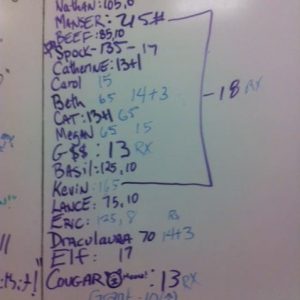 NATHAN: 105,8
MANSER: 45#
BEEF: 85,10
SPOCK-135-17
CATHERINE: 13#1
CAROL 15
BETH 65 14+3
CAT: 13#1 65
MEGAN 65 15
G-$$: 13 RX
BASIL: 125,10
KEVIN: 165
LANCE: 75,10
ERIC: 125,8 RX
DRACULAURA 70 14+3
ELF: 17
COUGAR :13 RX
-18 RX